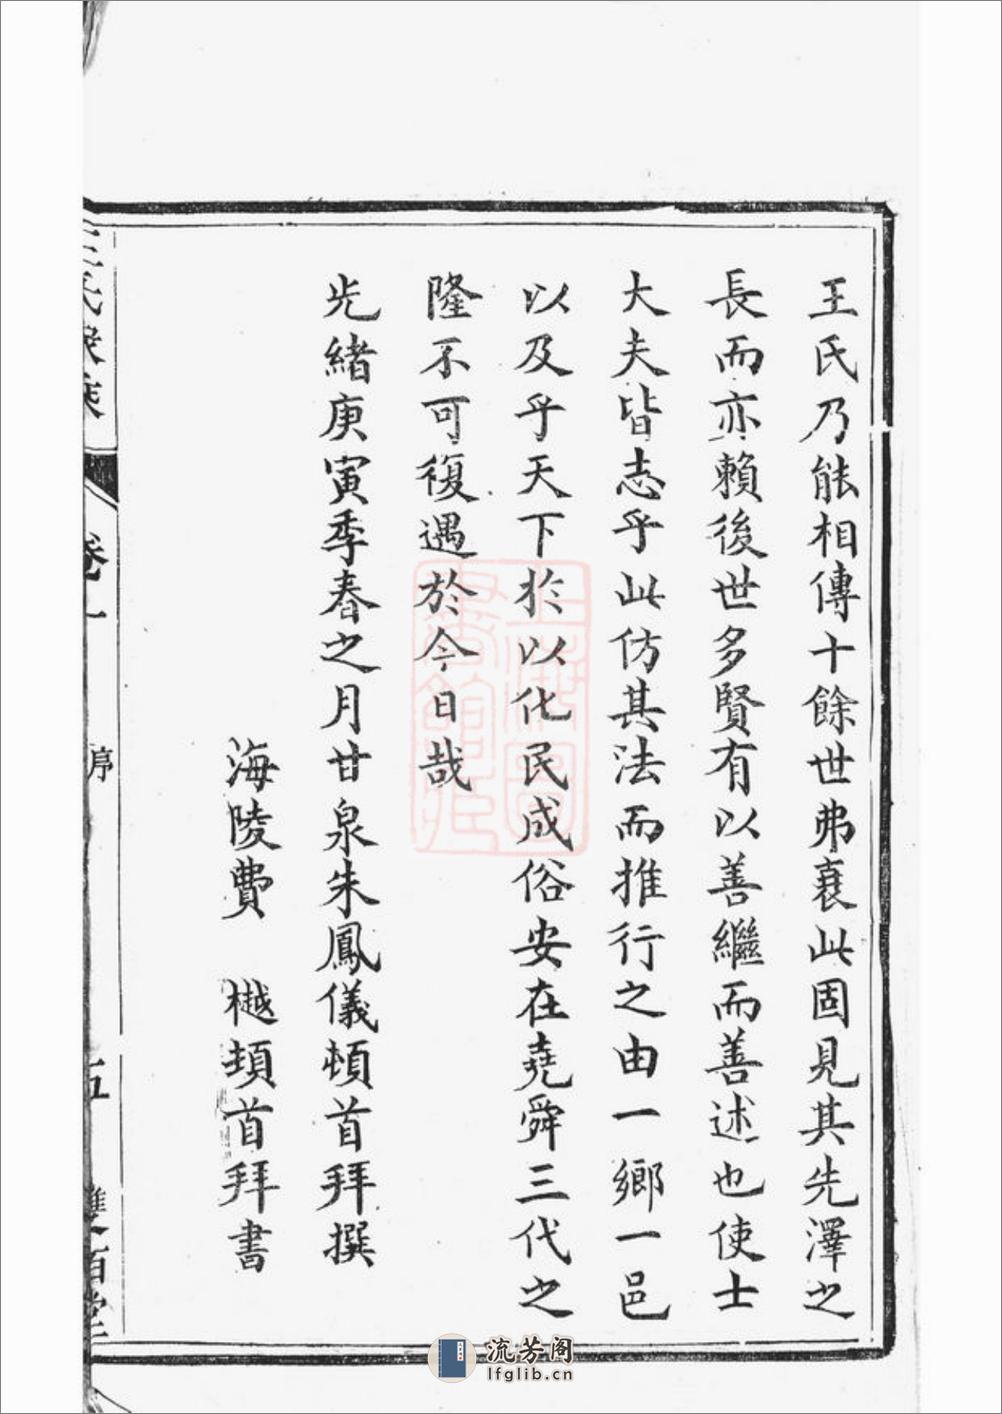 王氏乃能相傳十餘世弗衰此固見其先澤之
長而亦賴後世多賢有以善繼而善述也使士
大夫皆志乎此仿其法而推行之由一鄉一邑
以及乎天下於以化民成俗安在堯舜三代之
隆不可復遇於今日哉
光緒庚寅季春之月甘泉朱鳳儀頓首拜撰
海陵費樾頓首拜書
王氏家乘
卷一
序
五
雙百堂
上海圖書館藏
流芳阁
lfglib.cn